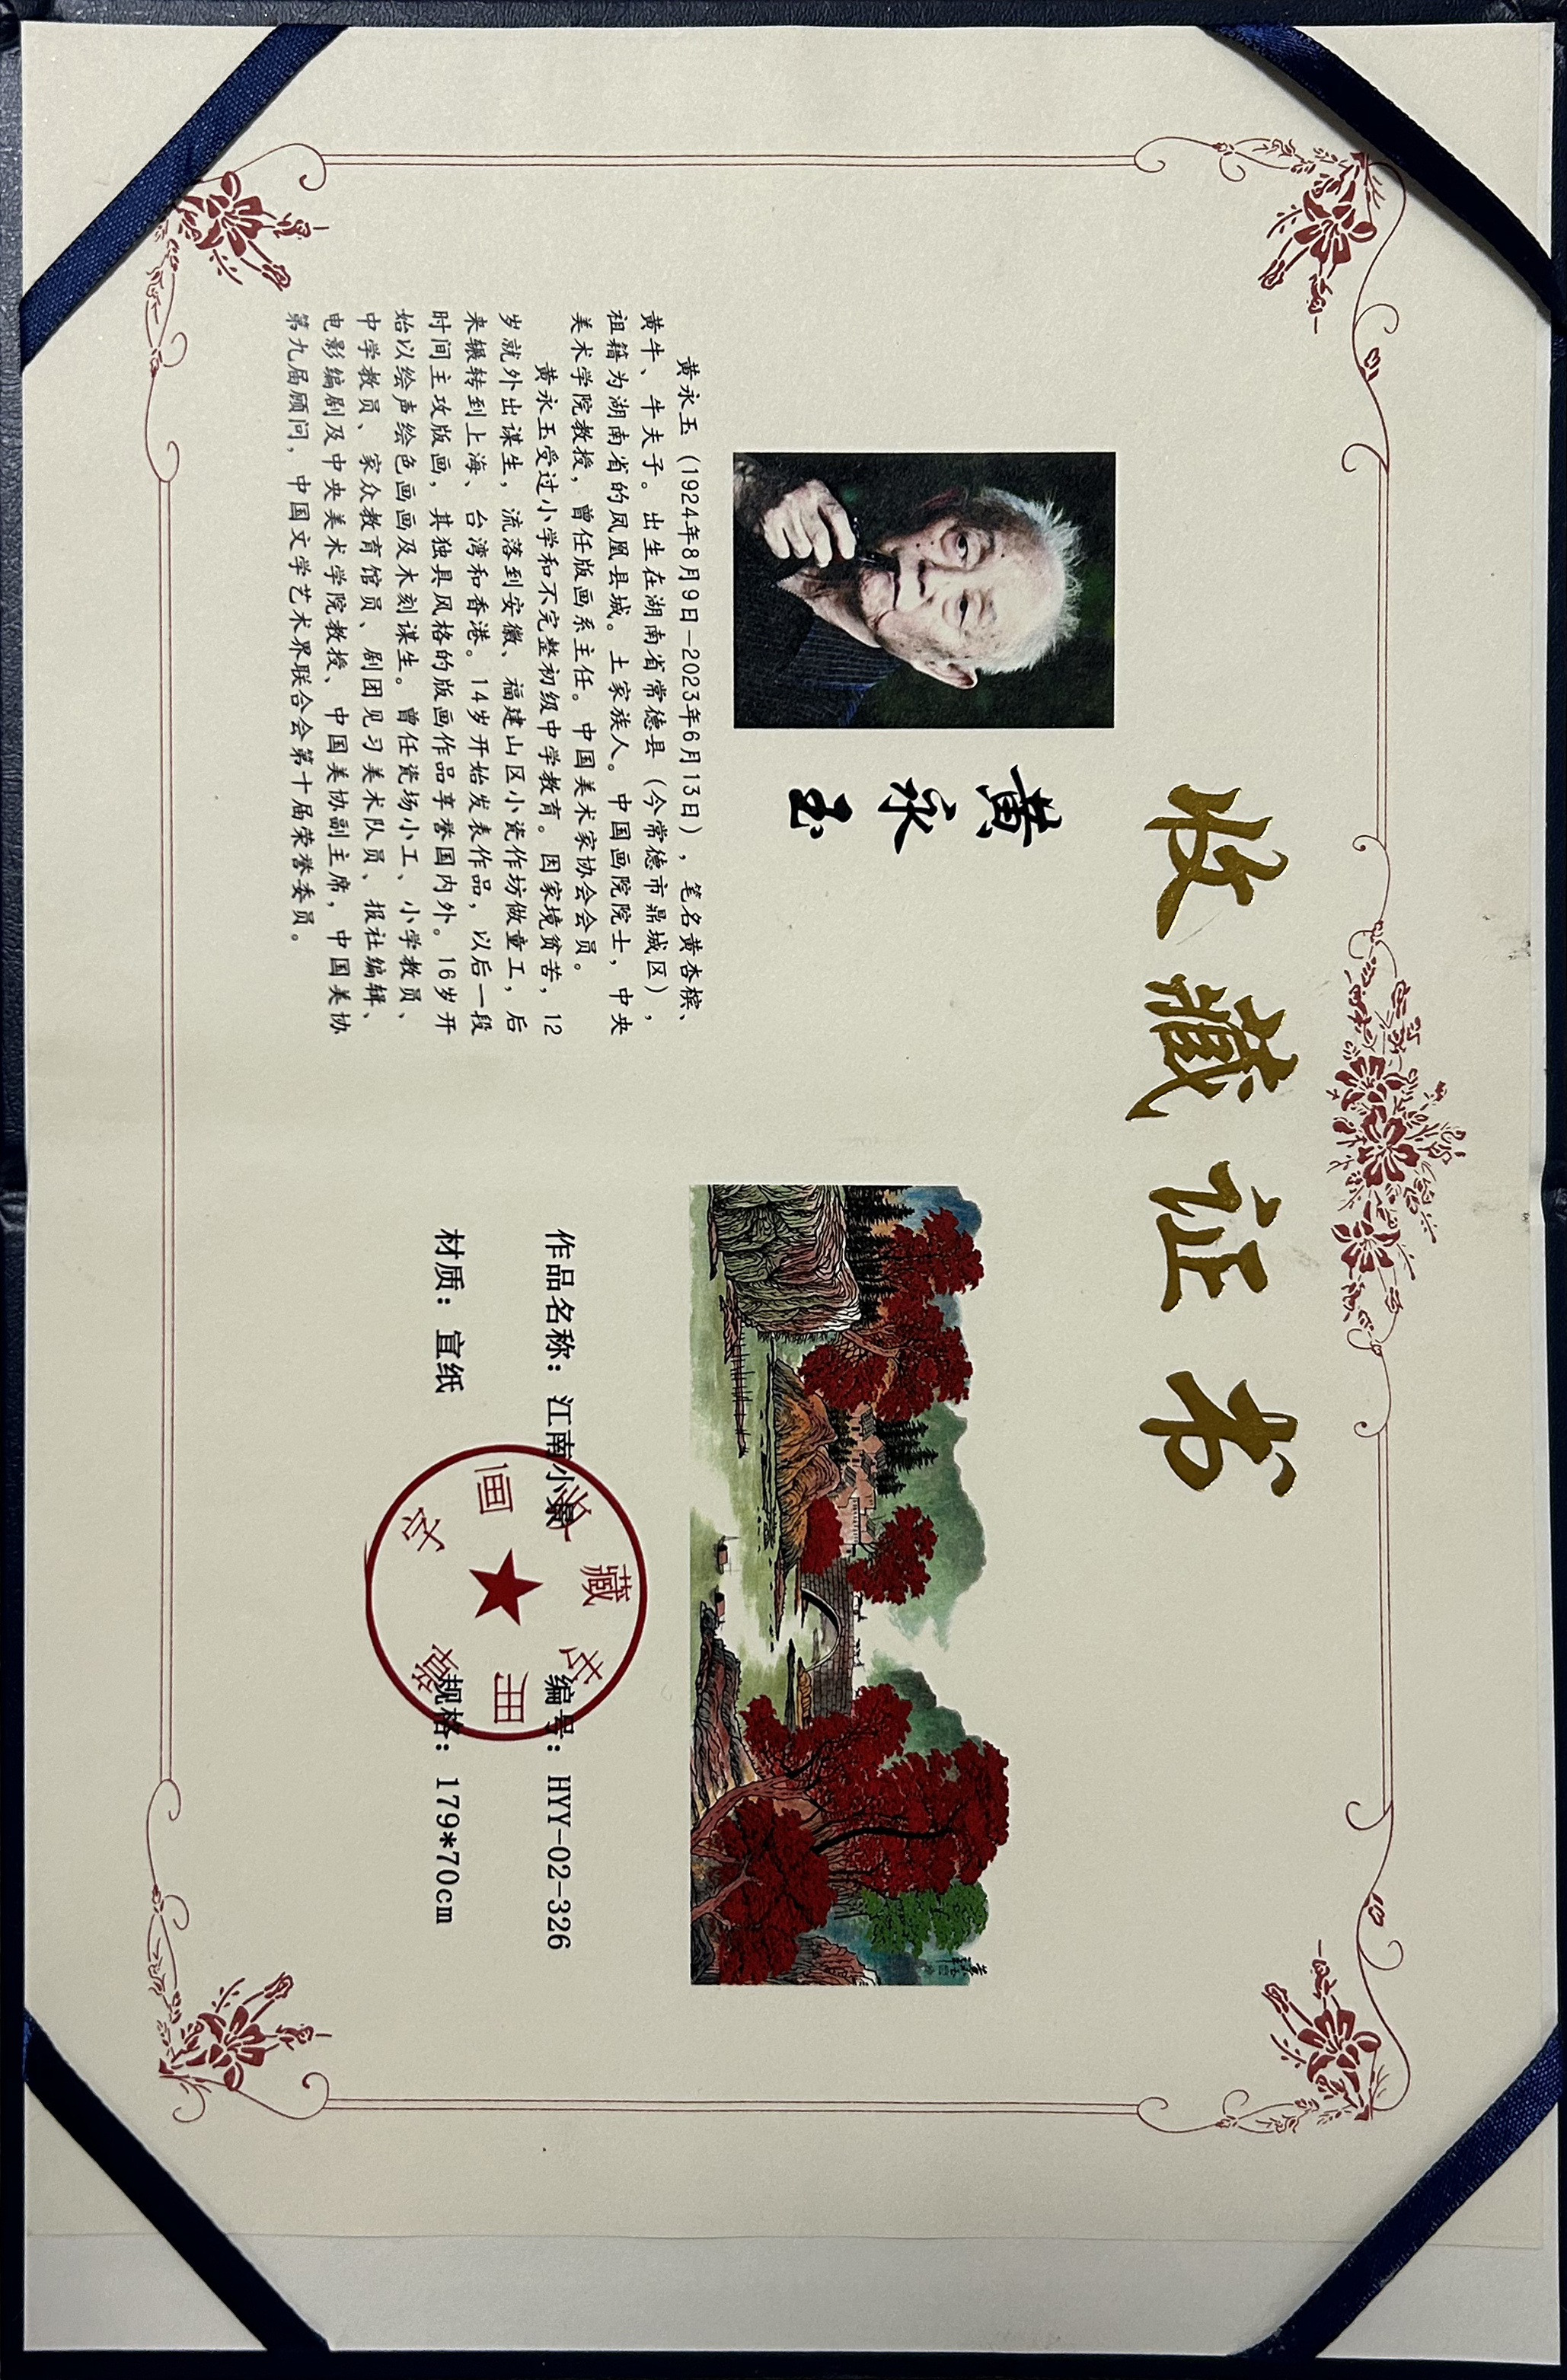 收藏证书
黄永玉
黄永玉（1924年8月9日-2023年6月13日），笔名黄杏槟、
黄牛、牛夫子。出生在湖南省常德县（今常德市鼎城区），
祖籍为湖南省的凤凰县城。土家族人。中国画院院士，中央
美术学院教授，曾任版画系主任。中国美术家协会会员。
黄永玉受过小学和不完整初级中学教育。因家境贫苦，12
岁就外出谋生，流落到安徽、福建山区小瓷作坊做童工，后
来辗转到上海、台湾和香港。14岁开始发表作品，以后一段
时间主攻版画，其独具风格的版画作品享誉国内外。16岁开
始以绘声绘色画画及木刻谋生。曾任瓷场小工、小学教员、
中学教员、家众教育馆员、剧团见习美术队员、报社编辑、
电影编剧及中央美术学院教授、中国美协副主席，中国美协
第九届顾问，中国文学艺术界联合会第十届荣誉委员。
作品名称：江南小景
编号：HYY-02-326
材质：宣纸
规格：179*70cm
字画收藏专用章